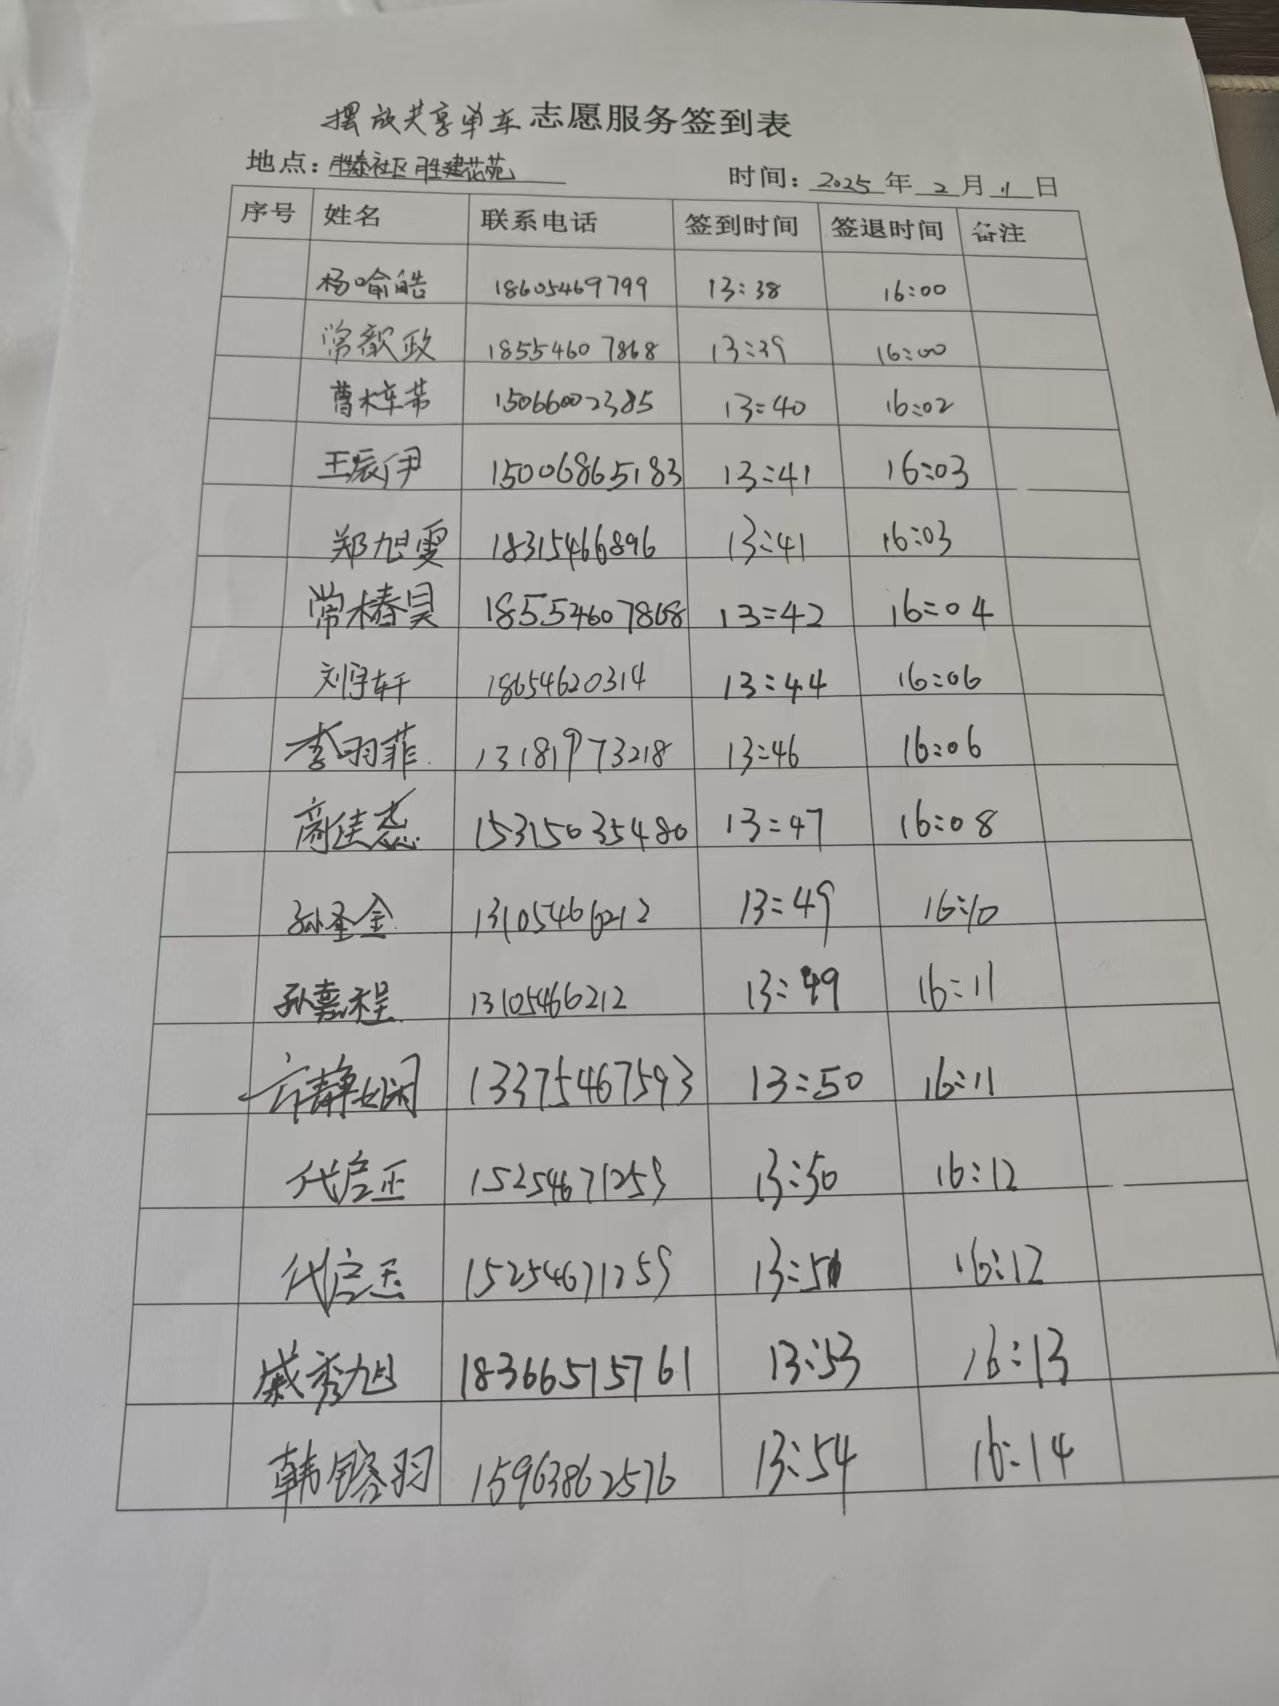 摆放共享单车志愿服务签到表
地点:胜泰社区胜建花苑 时间:2025年2月11日
序号 姓名 联系电话 签到时间 签退时间 备注
杨喻皓 18605469799 13:38 16:00
常歆政 18554607868 13:39 16:00
曹梓芾 15066002385 13:40 16:02
王辰伊 15006865183 13:41 16:03
郑旭雯 18315466896 13:41 16:03
常椿昊 18554607868 13:42 16:04
刘宇轩 18654620314 13:44 16:06
李羽菲 13181973218 13:46 16:06
商佳蕊 15315035480 13:47 16:08
孙圣金 13105466212 13:49 16:10
孙嘉程 13105466212 13:49 16:11
方静娴 13375467593 13:50 16:11
代启正 15254671259 13:50 16:12
代启丞 15254671259 13:51 16:12
戚秀旭 18366515761 13:53 16:13
韩镕羽 15963862576 13:54 16:14